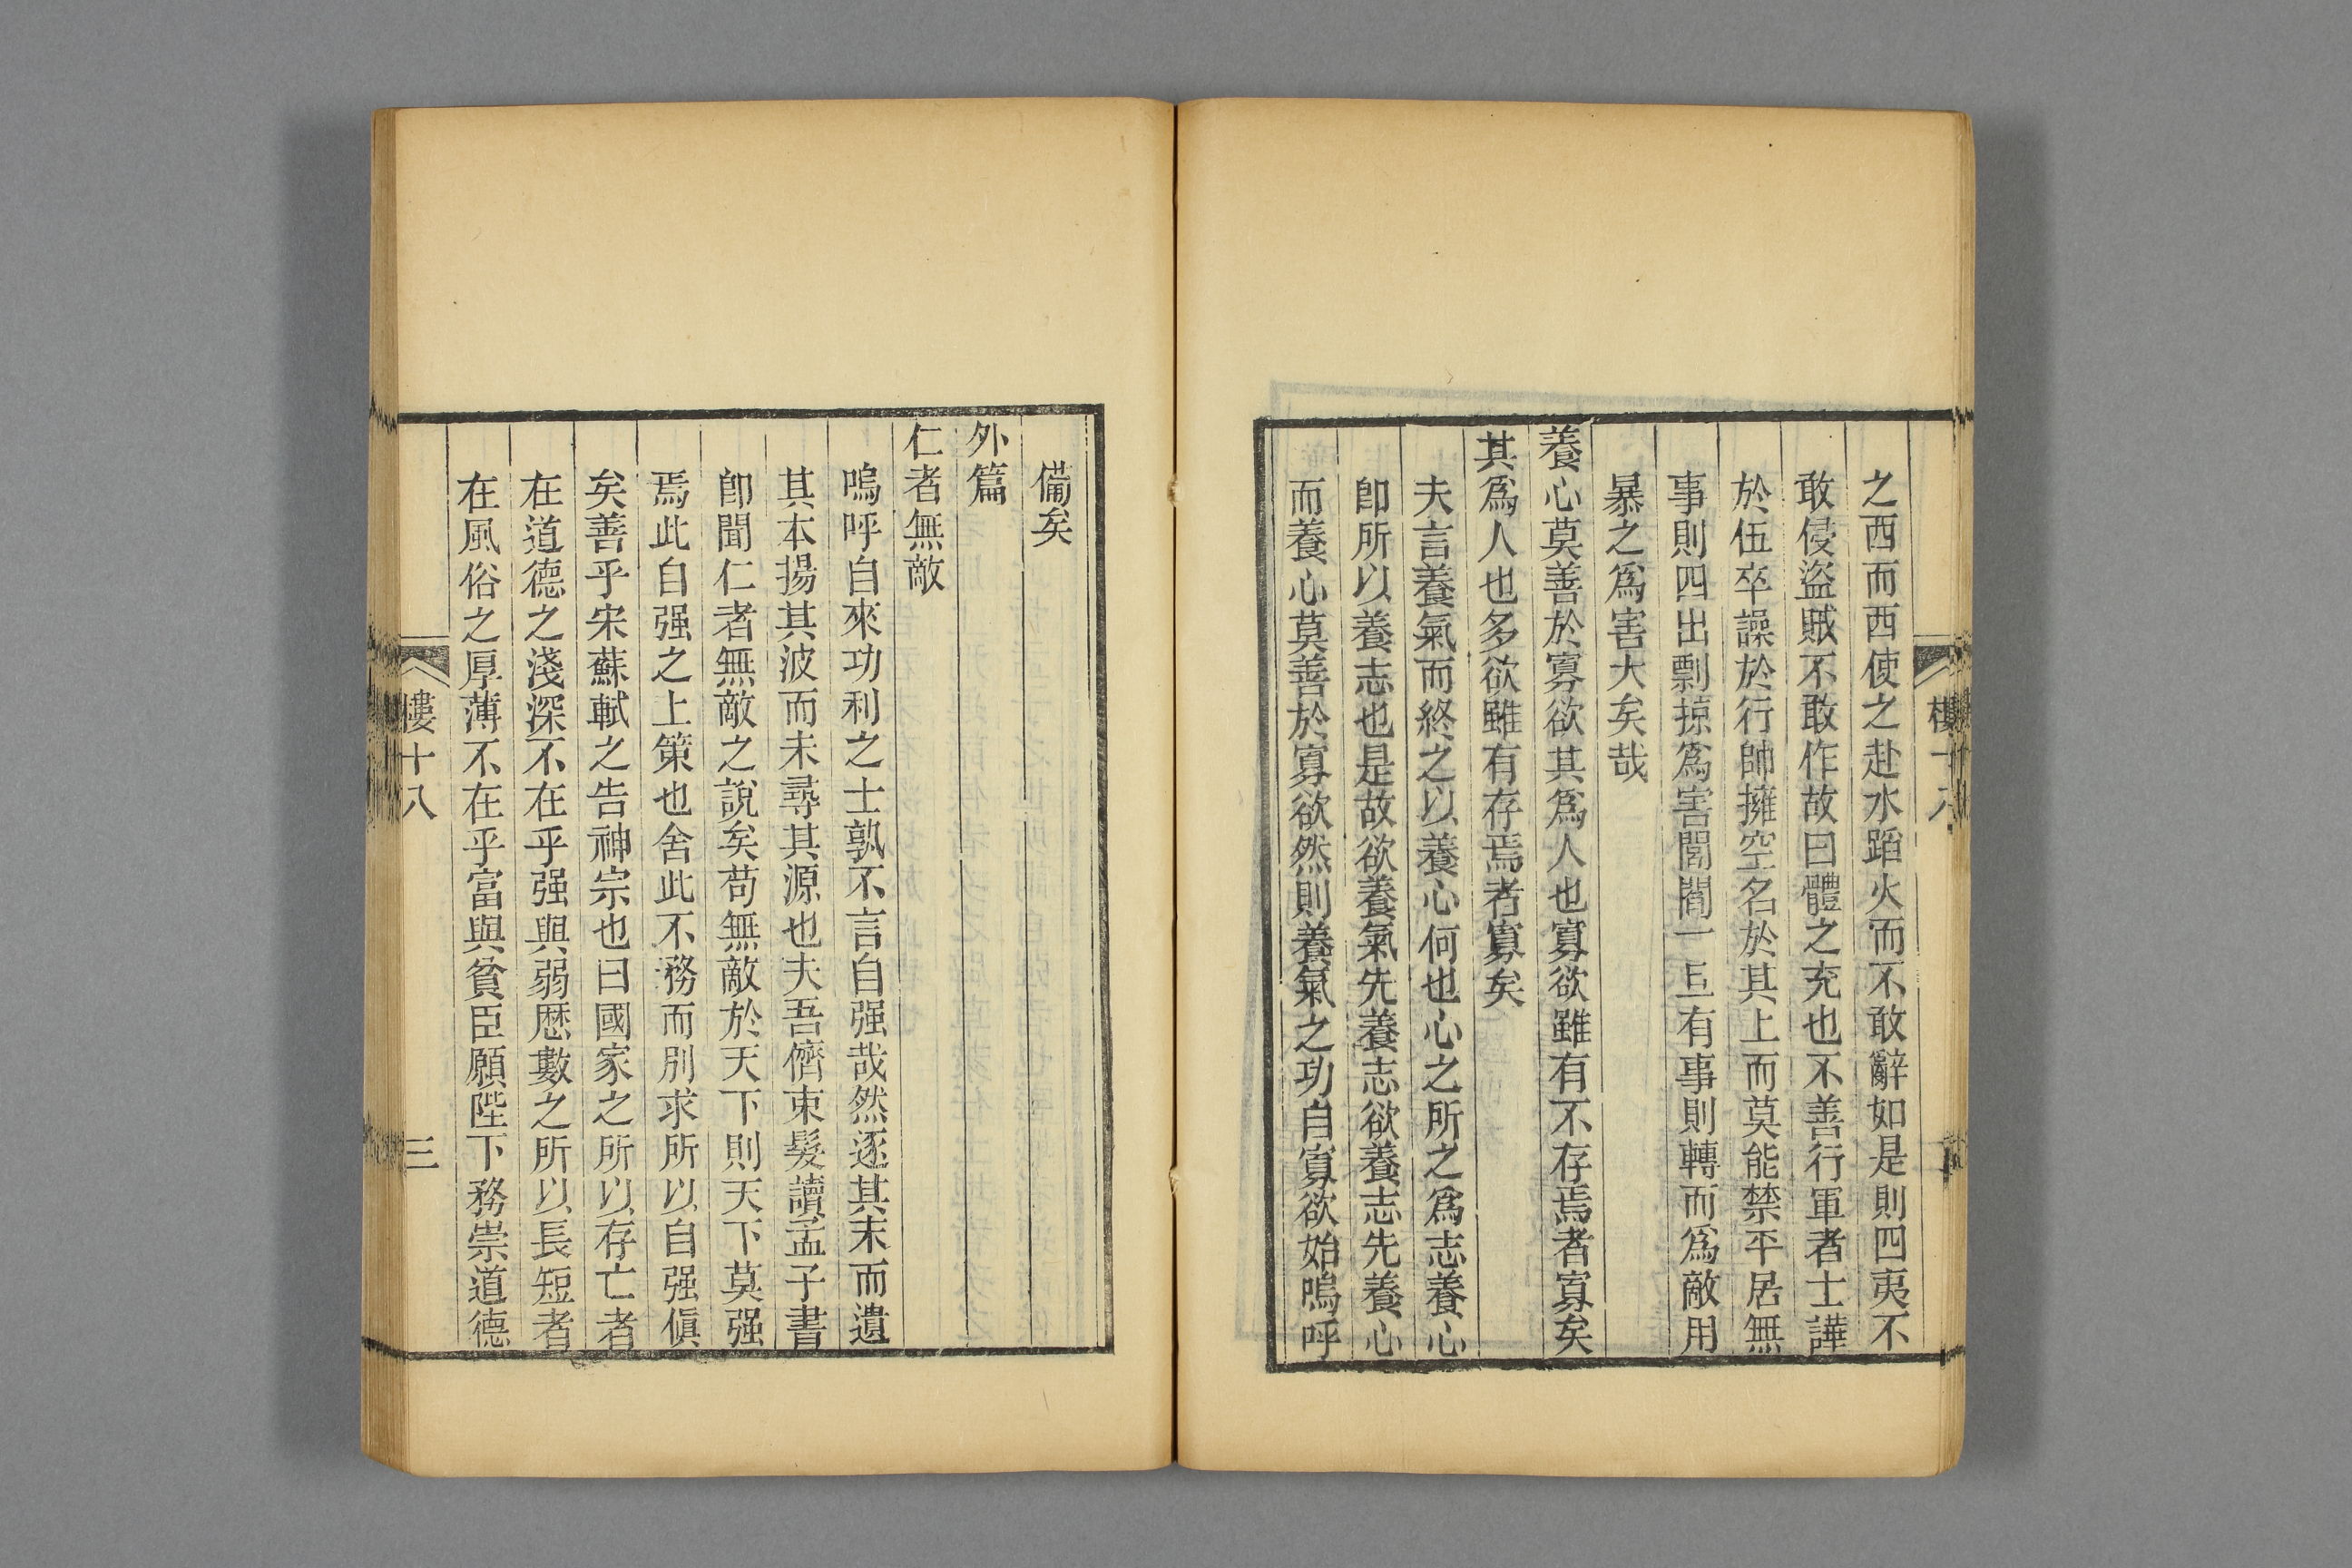 之西而西使之赴水蹈火而不敢辭如是則四夷不
敢侵盜賊不敢作故曰體之充也不善行軍者士譁
於伍卒譟於行帥擁空名於其上而莫能禁平居無
事則四出剽掠爲害閭閻一旦有事則轉而爲敵用
暴之爲害大矣哉
養心莫善於寡欲其爲人也寡欲雖有不存焉者寡矣
其爲人也多欲雖有存焉者寡矣
夫言養氣而終之以養心何也心之所之爲志養心
卽所以養志也是故欲養氣先養志欲養志先養心
而養心莫善於寡欲然則養氣之功自寡欲始嗚呼
備矣
外篇
仁者無敵
嗚呼自來功利之士孰不言自强哉然逐其末而遺
其本揚其波而未尋其源也夫吾儕束髮讀孟子書
卽聞仁者無敵之說矣苟無敵於天下則天下莫强
焉此自强之上策也舍此不務而別求所以自强傎
矣善乎宋蘇軾之告神宗也曰國家之所以存亡者
在道德之淺深不在乎强與弱歷數之所以長短者
在風俗之厚薄不在乎富與貧臣願陛下務崇道德
樓十八
三